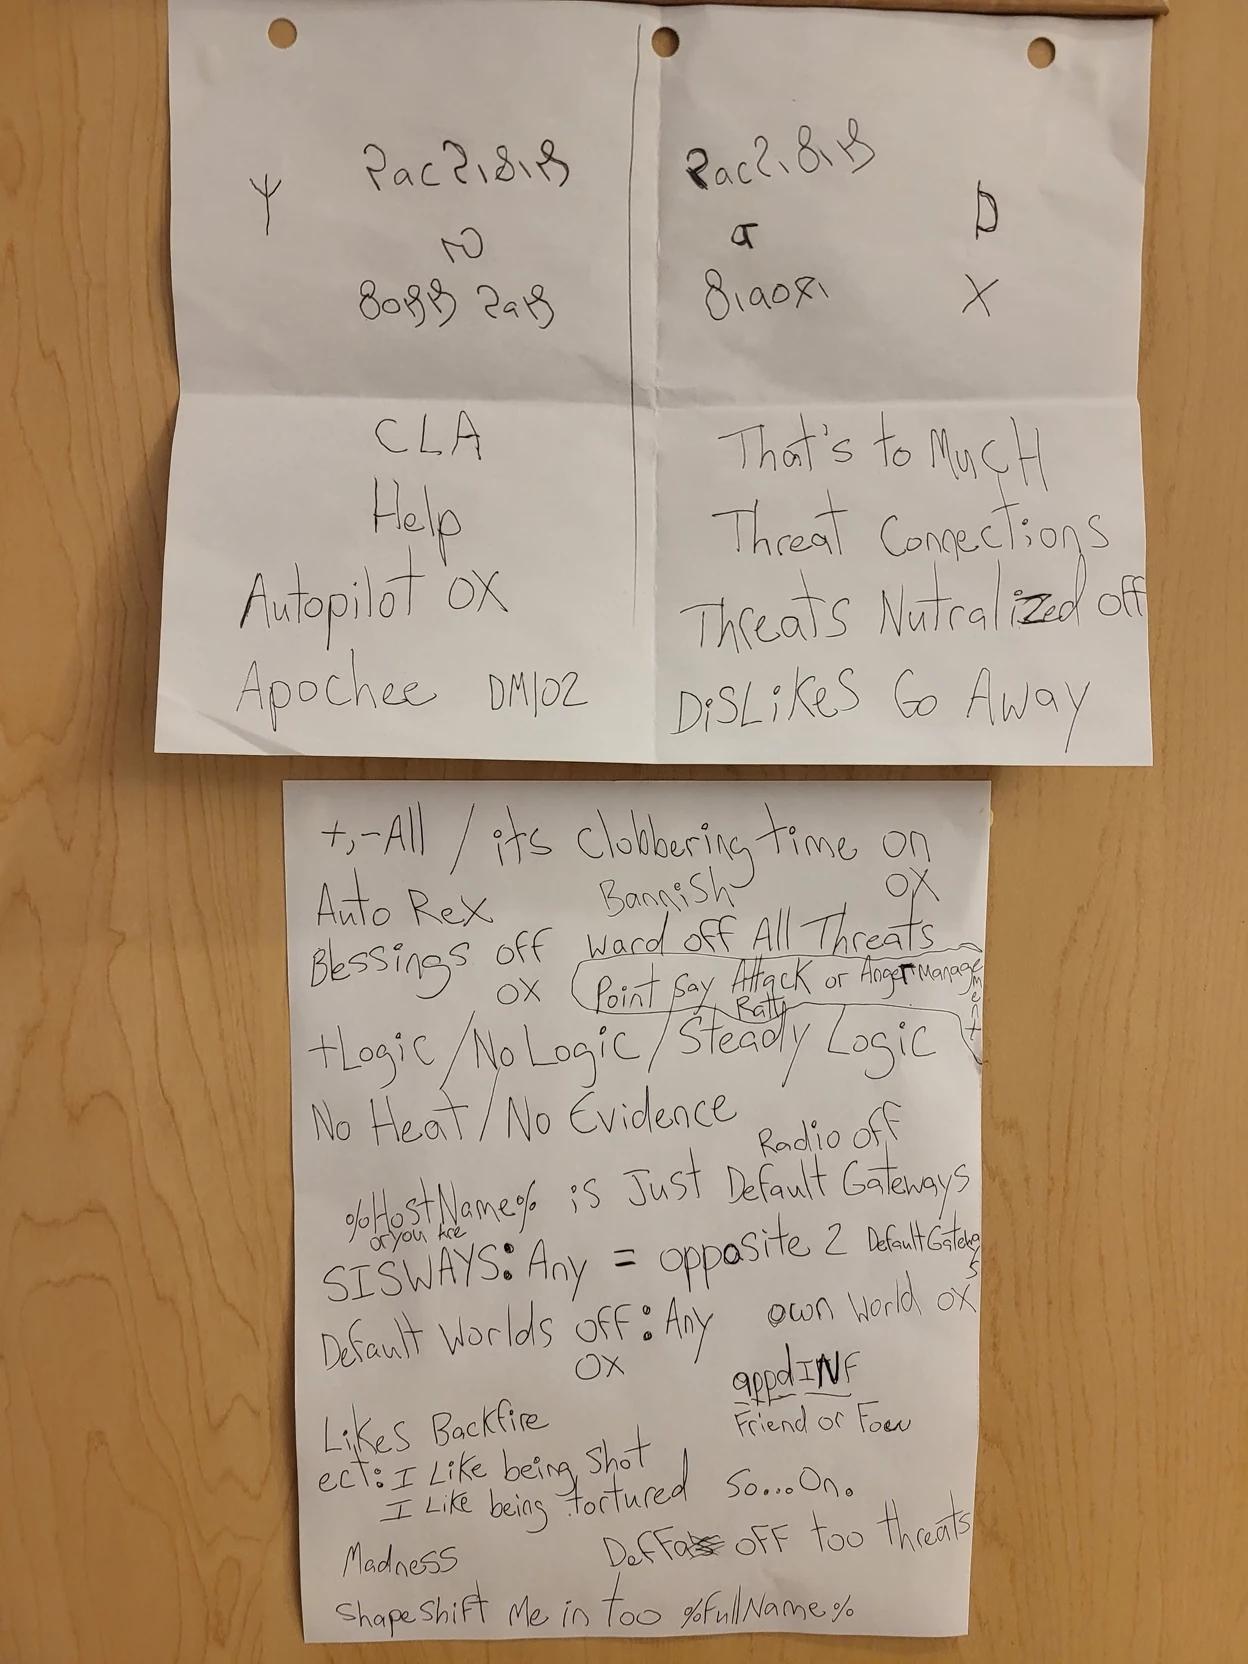 CLA
Help
Autopilot OX
Apochee DM102
D
X
That's to MucH
Threat Connections
Threats Nutralized off
DiSLiKeS Go Away
+,-All / its Clobbering time on
OX
Auto Rex Bannish
Blessings off ward off All Threats
OX Point say Attack or Anger Management
+Logic / No Logic / Steady Logic
No Heat / No Evidence
Radio off
%HostName% is Just Default Gateways
or you Are
SISWAYS: Any = opposite 2 Default Gateways
Default Worlds off: Any own World OX
OX
appdINF
Friend or Foew
Likes Backfire
ect: I Like being shot
I Like being tortured So...On.
Madness OFF too threats
ShapeShift Me in too %FullName%